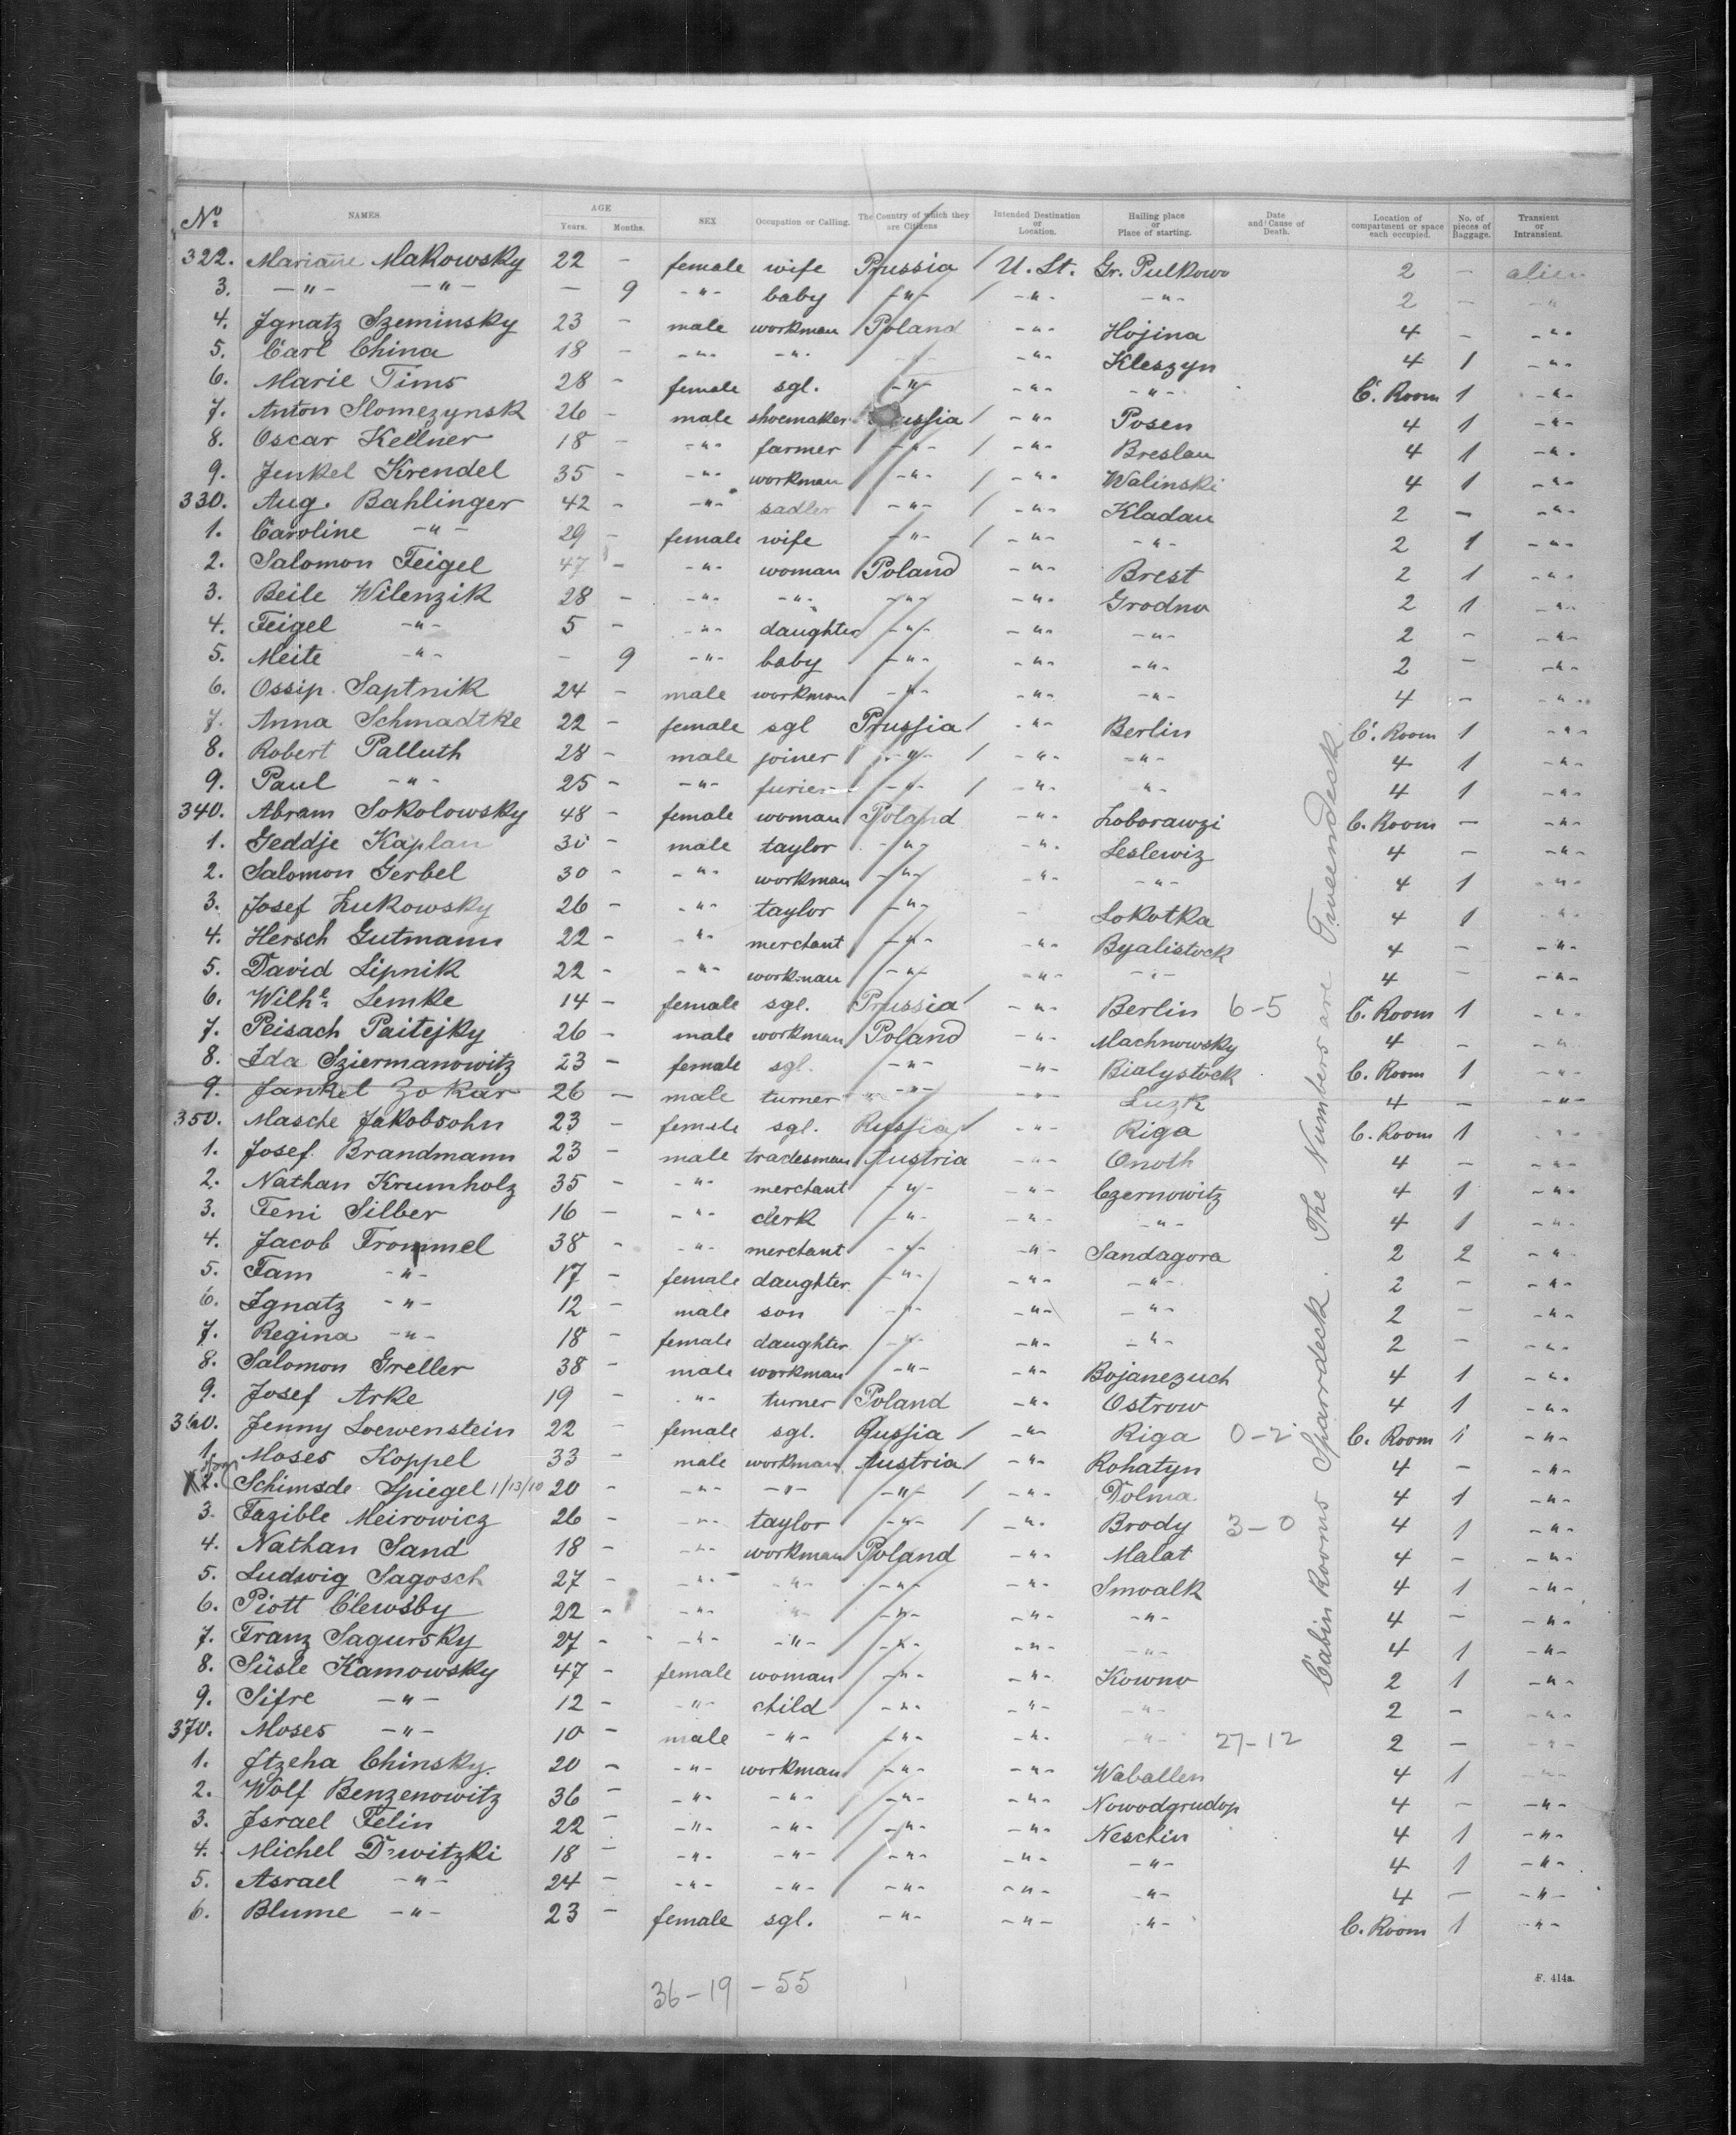 No. NAMES. AGE Years. Months. SEX Occupation or Calling. The Country of which they are Citizens Intended Destination or Location. Hailing place or Place of starting. Date and Cause of Death. Location of compartment or space each occupied. No. of pieces of Baggage. Transient or Intransient.
322. Mariane Makowsky 22 - female wife Prussia / U. St. Gr. Pulkowo 2 - alien
3. -"- -"- - 9 -"- baby -"- / -"- -"- 2 - -"-
4. Ignatz Szeminsky 23 - male workman Poland -"- Hojina 4 - -"-
5. Carl China 18 - -"- -"- -"- -"- Kleszyn 4 1 -"-
6. Marie Tims 28 - female sgl. -"- -"- -"- C. Room 1 -"-
7. Anton Slomezynsk 26 - male shoemaker Prussia / -"- Posen 4 1 -"-
8. Oscar Kellner 18 - -"- farmer -"- / -"- Breslau 4 1 -"-
9. Jenkel Krendel 35 - -"- workman -"- / -"- Walinski 4 1 -"-
330. Aug. Bahlinger 42 - -"- sadler -"- / -"- Kladau 2 - -"-
1. Caroline -"- 29 - female wife -"- / -"- -"- 2 1 -"-
2. Salomon Feigel 47 - -"- woman Poland -"- Brest 2 1 -"-
3. Beile Wilenzik 28 - -"- -"- -"- -"- Grodno 2 1 -"-
4. Feigel -"- 5 - -"- daughter -"- -"- -"- 2 - -"-
5. Meite -"- - 9 -"- baby -"- -"- -"- 2 - -"-
6. Ossip Saptnik 24 - male workman -"- -"- -"- 4 - -"-
7. Anna Schmadtke 22 - female sgl Prussia / -"- Berlin C. Room 1 -"-
8. Robert Palluth 28 - male joiner -"- / -"- -"- 4 1 -"-
9. Paul -"- 25 - -"- furier -"- / -"- -"- 4 1 -"-
340. Abram Sokolowsky 48 - female woman Poland -"- Loborawzi C. Room - -"-
1. Geddje Kaplan 30 - male taylor -"- -"- Leslewiz 4 - -"-
2. Salomon Gerbel 30 - -"- workman -"- -"- -"- 4 1 -"-
3. Josef Lukowsky 26 - -"- taylor -"- - Lokotka 4 1 -"-
4. Hersch Gutmann 22 - -"- merchant -"- -"- Byalistock 4 - -"-
5. David Lipnik 22 - -"- workman -"- -"- -"- 4 - -"-
6. Wilhe. Lemke 14 - female sgl. Prussia / -"- Berlin 6-5 C. Room 1 -"-
7. Peisach Paitejky 26 - male workman Poland -"- Machnowsky 4 - -"-
8. Ida Sziermanowitz 23 - female sgl. -"- -"- Bialystock C. Room 1 -"-
9. Jankel Zokar 26 - male turner -"- -"- Luzk 4 - -"-
350. Masche Jakobsohn 23 - female sgl. Russia / -"- Riga C. Room 1 -"-
1. Josef Brandmann 23 - male tradesman Austria -"- Onoth 4 - -"-
2. Nathan Krumholz 35 - -"- merchant -"- -"- Czernowitz 4 1 -"-
3. Feni Silber 16 - -"- clerk -"- -"- -"- 4 1 -"-
4. Jacob Frommel 38 - -"- merchant -"- -"- Sandagora 2 2 -"-
5. Fam -"- 17 - female daughter -"- -"- -"- 2 - -"-
6. Ignatz -"- 12 - male son -"- -"- -"- 2 - -"-
7. Regina -"- 18 - female daughter -"- -"- -"- 2 - -"-
8. Salomon Greller 38 - male workman -"- -"- Bojanezuch 4 1 -"-
9. Josef Arke 19 - -"- turner Poland -"- Ostrow 4 1 -"-
360. Jenny Loewenstein 22 - female sgl. Russia / -"- Riga 0-2 C. Room 1 -"-
1. Moses Koppel 33 - male workman Austria / -"- Rohatyn 4 - -"-
X 2. Schimsde Spiegel 1/13/10 20 - -"- -"- -"- / -"- Dolma 4 1 -"-
3. Fazible Meirowicz 26 - -"- taylor -"- / -"- Brody 3-0 4 1 -"-
4. Nathan Sand 18 - -"- workman Poland -"- Malat 4 - -"-
5. Ludwig Sagosch 27 - -"- -"- -"- -"- Smoalk 4 1 -"-
6. Piott Clewsby 22 - -"- -"- -"- -"- -"- 4 - -"-
7. Franz Sagursky 27 - -"- -"- -"- -"- -"- 4 1 -"-
8. Süsle Kamowsky 47 - female woman -"- -"- Kowno 2 1 -"-
9. Sifre -"- 12 - -"- child -"- -"- -"- 2 - -"-
370. Moses -"- 10 - male -"- -"- -"- -"- 27-12 2 - -"-
1. Itzeha Chinsky. 20 - -"- workman -"- -"- Waballen 4 1 -"-
2. Wolf Benzenowitz 36 - -"- -"- -"- -"- Nowodgrudop 4 - -"-
3. Israel Felin 22 - -"- -"- -"- -"- Neschin 4 1 -"-
4. Michel Drwitzki 18 - -"- -"- -"- -"- -"- 4 1 -"-
5. Asrael -"- 24 - -"- -"- -"- -"- -"- 4 - -"-
6. Blume -"- 23 - female sgl. -"- -"- -"- C. Room 1 -"-
Cabin Rooms Sparrdeck. The Numbers are Tweendeck.
36-19 -55
F. 414a.